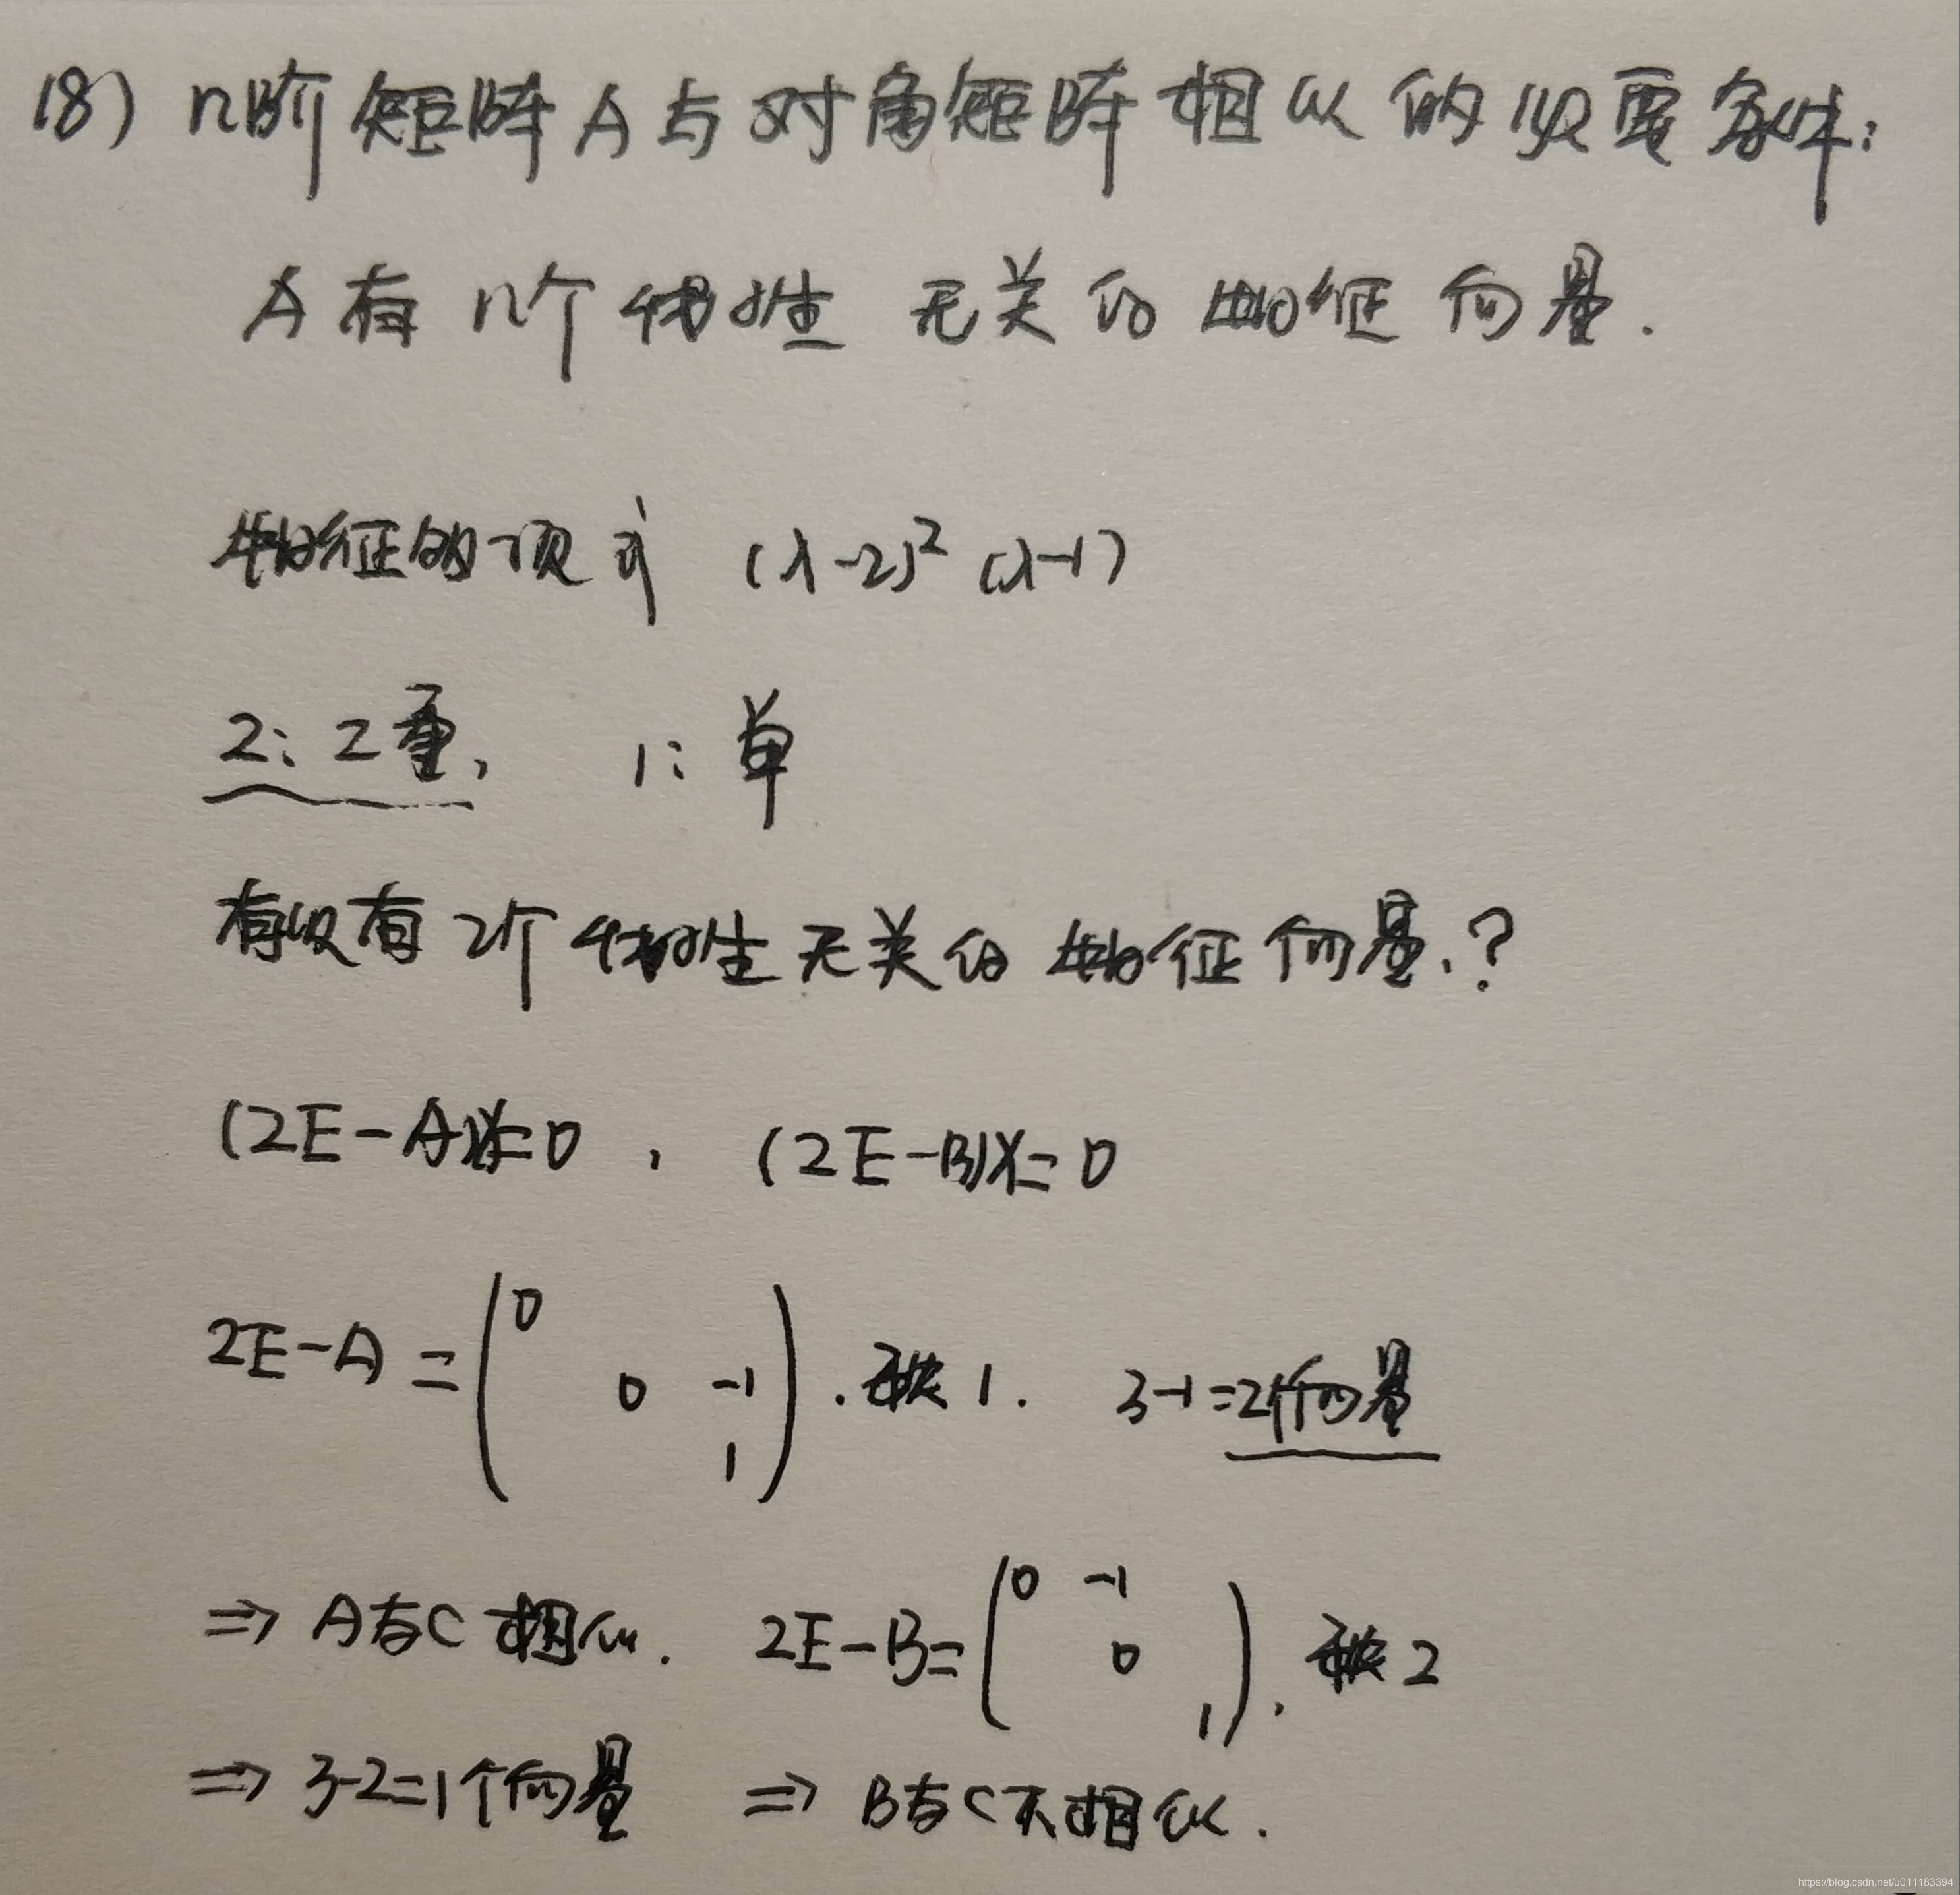 (8) n阶矩阵A与对角矩阵相似的充要条件:
A有n个线性无关的特征向量.
特征的项式 (λ-2)² (λ-1)
2: 2重, 1: 单
有没有2个线性无关的特征向量.?
(2E-A)X=0 , (2E-B)X=0
2E-A = ( 0
0 -1
1 ) . 秩1. 3-1=2个向量
⇒ A与C相似. 2E-B= ( 0 -1
0
1 ) . 秩2
⇒ 3-2=1个向量 ⇒ B与C不相似.
https://blog.csdn.net/u011183394